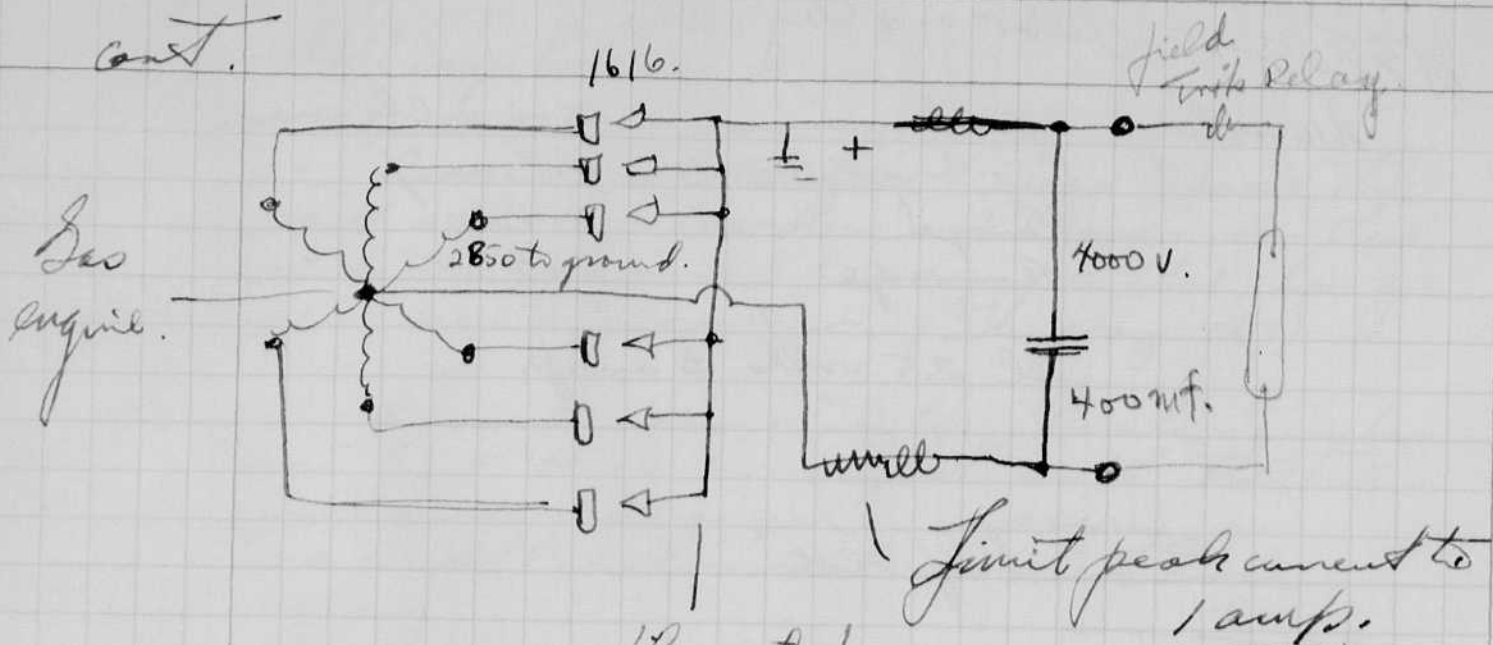 const.
1616.
field
Relay.
+
Gas
engine.
2850 to ground.
4000 v.
400 mf.
Limit peak current to
1 amp.